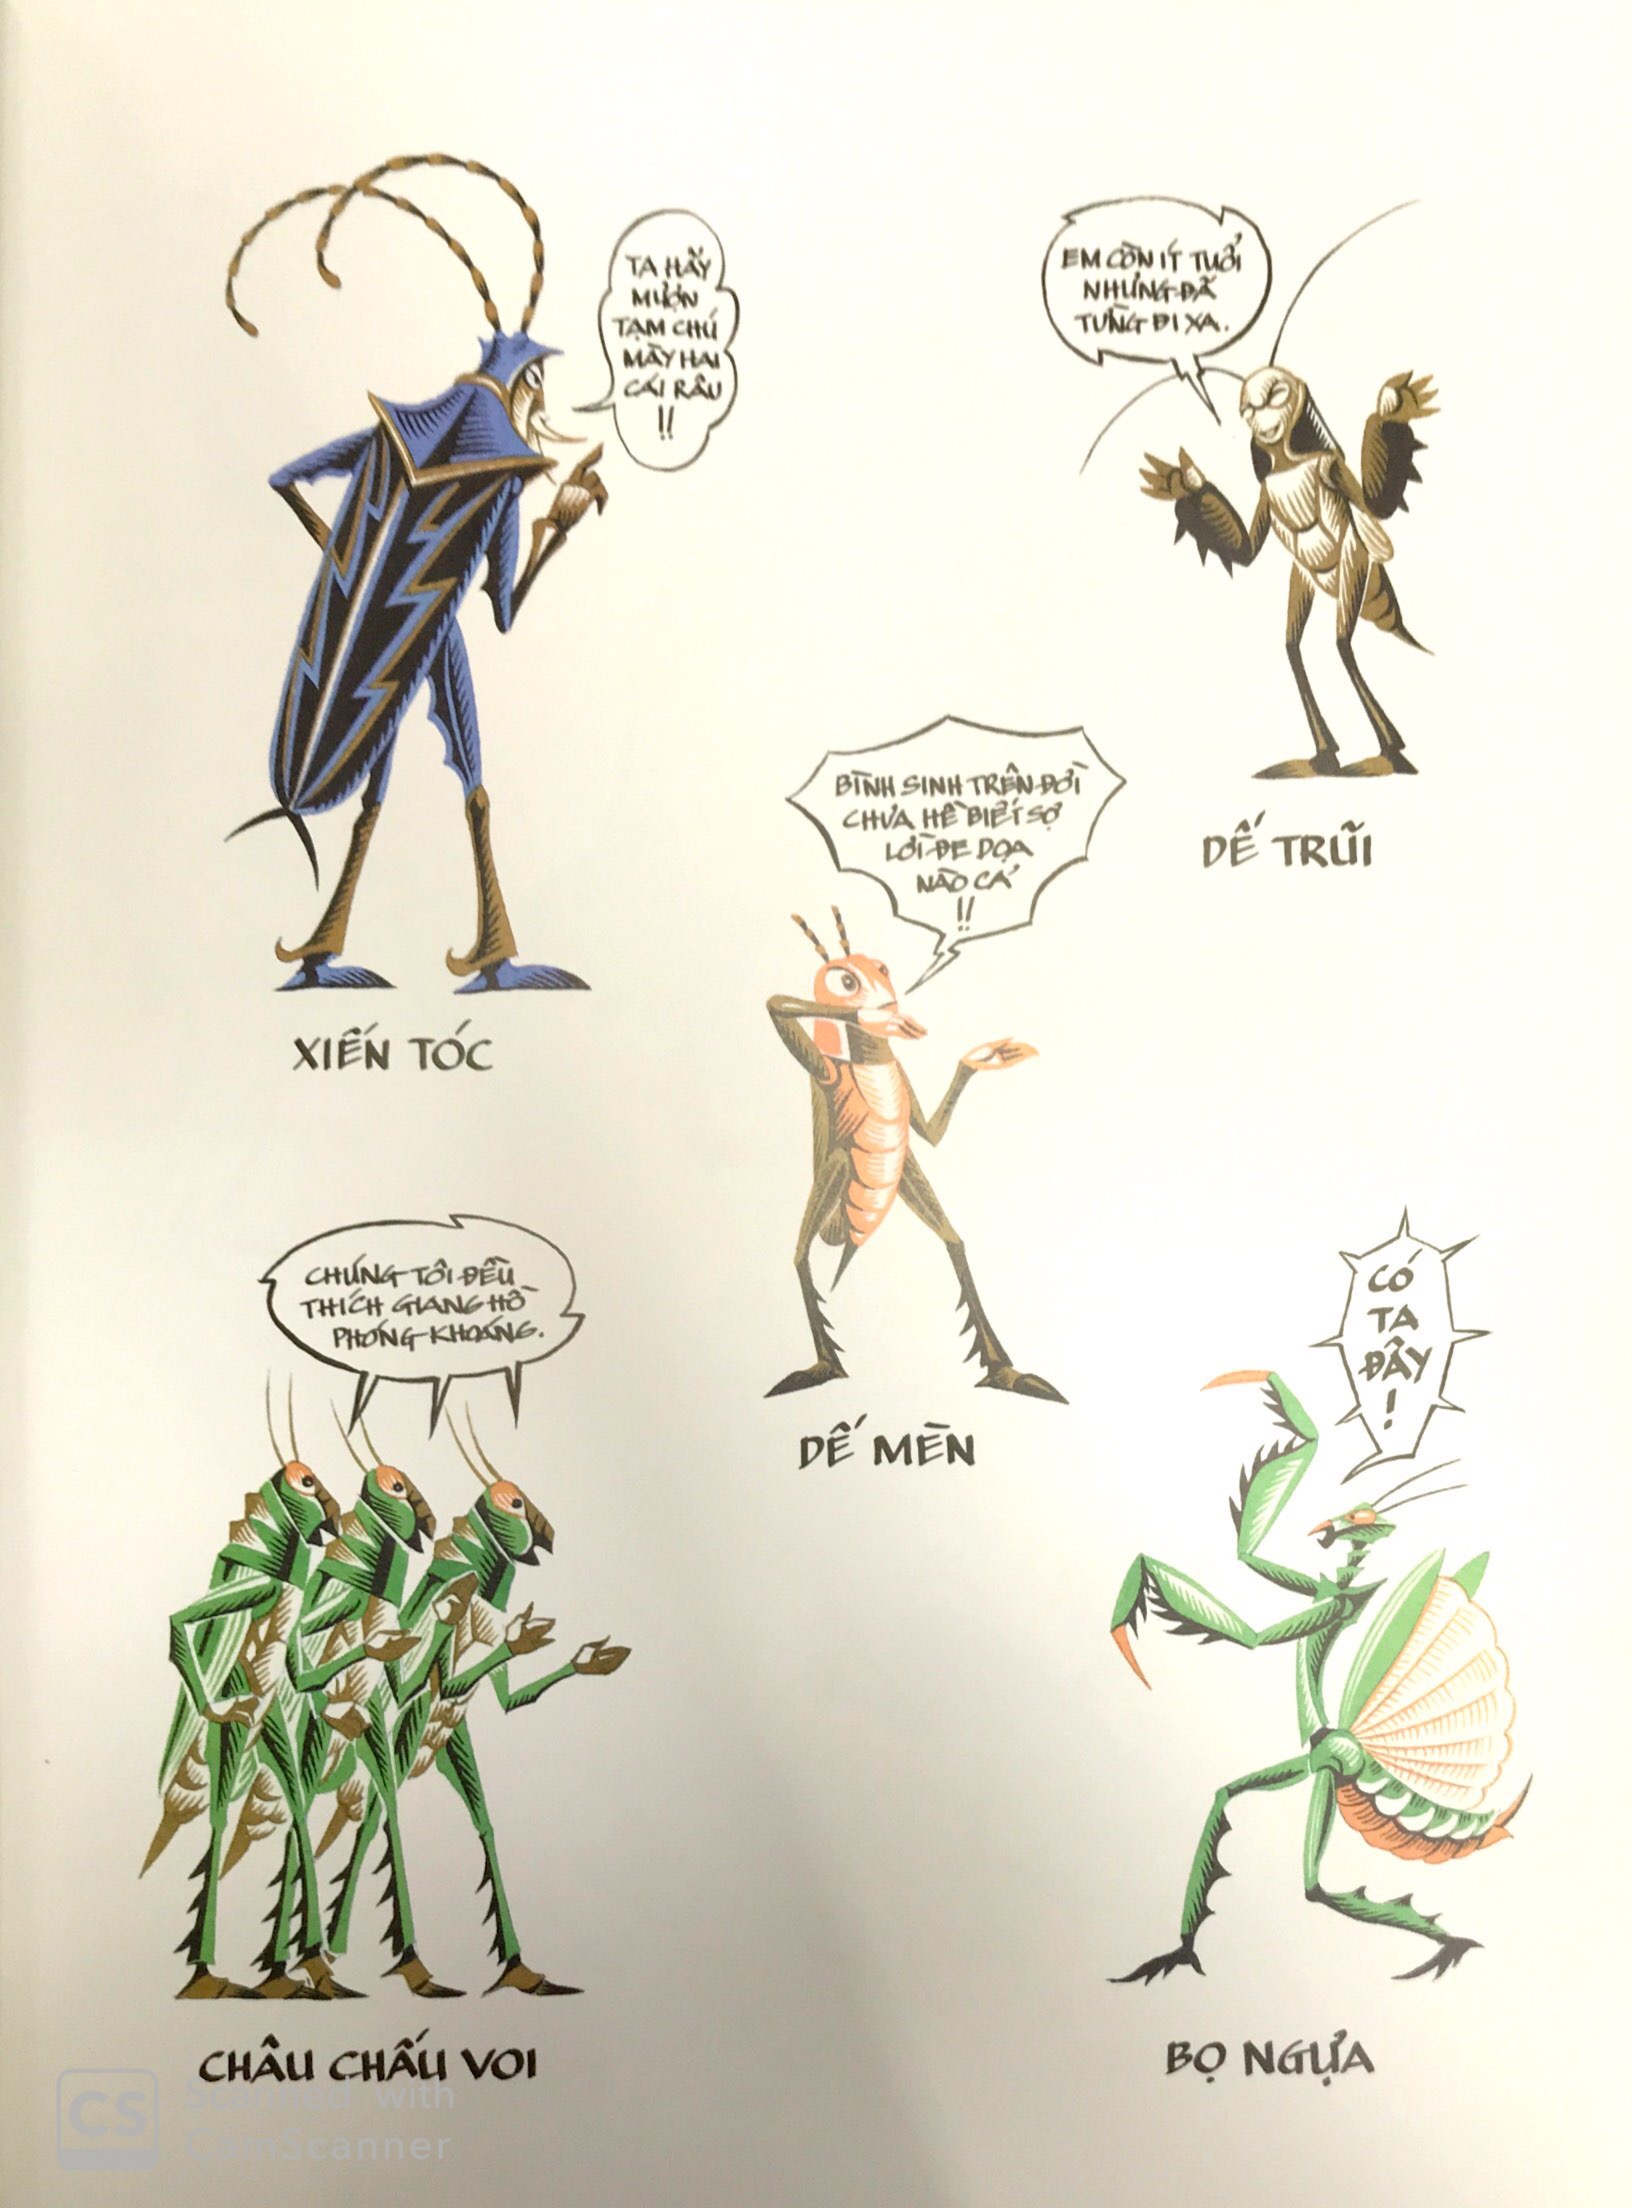 TA HÃY
MƯỢN
TẠM CHÚ
MÀY HAI
CÁI RÂU
!!
XIẾN TÓC
EM CÒN ÍT TUỔI
NHƯNG ĐÃ
TỪNG ĐI XA.
DẾ TRŨI
BÌNH SINH TRÊN ĐỜI
CHƯA HỀ BIẾT SỢ
LỜI ĐE DỌA
NÀO CẢ
!!
DẾ MÈN
CHÚNG TÔI ĐỀU
THÍCH GIANG HỒ
PHÓNG KHOÁNG.
CHÂU CHẤU VOI
CÓ
TA
ĐÂY
!
BỌ NGỰA
CS
Scanned with
CamScanner